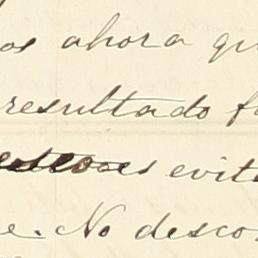 os ahora qu
resultado f
es evit
e. No desco